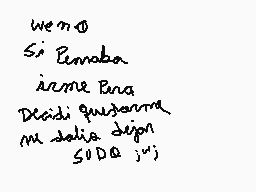 weno
si Pensaba
irme Pera
Decidi quedarme
me dolia dejar
SUDO ;w;